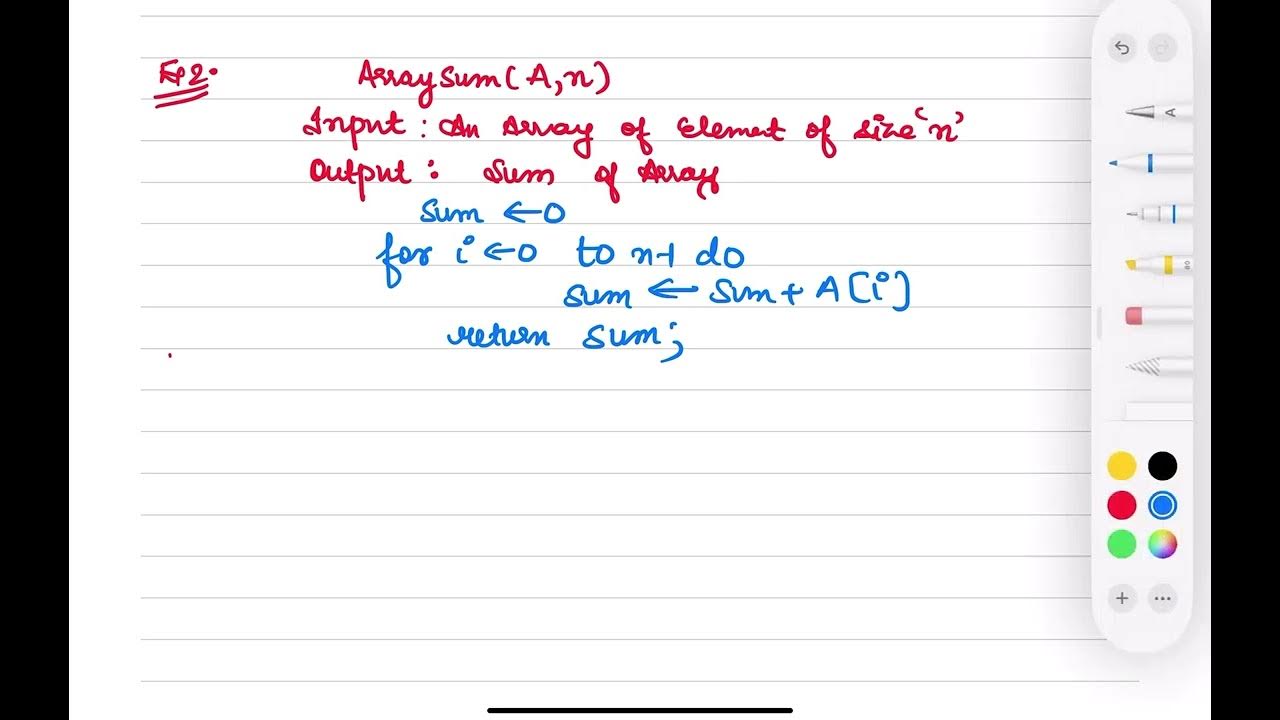 Ex 2.
ArraySum(A,n)
Input : An Array of Elemet of size 'n'
Output : Sum of Array
Sum ← 0
for i ← 0 to n-1 do
Sum ← Sum + A[i]
return Sum;